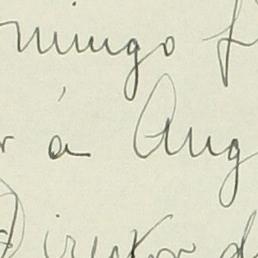 mingo
á Aug
Director d